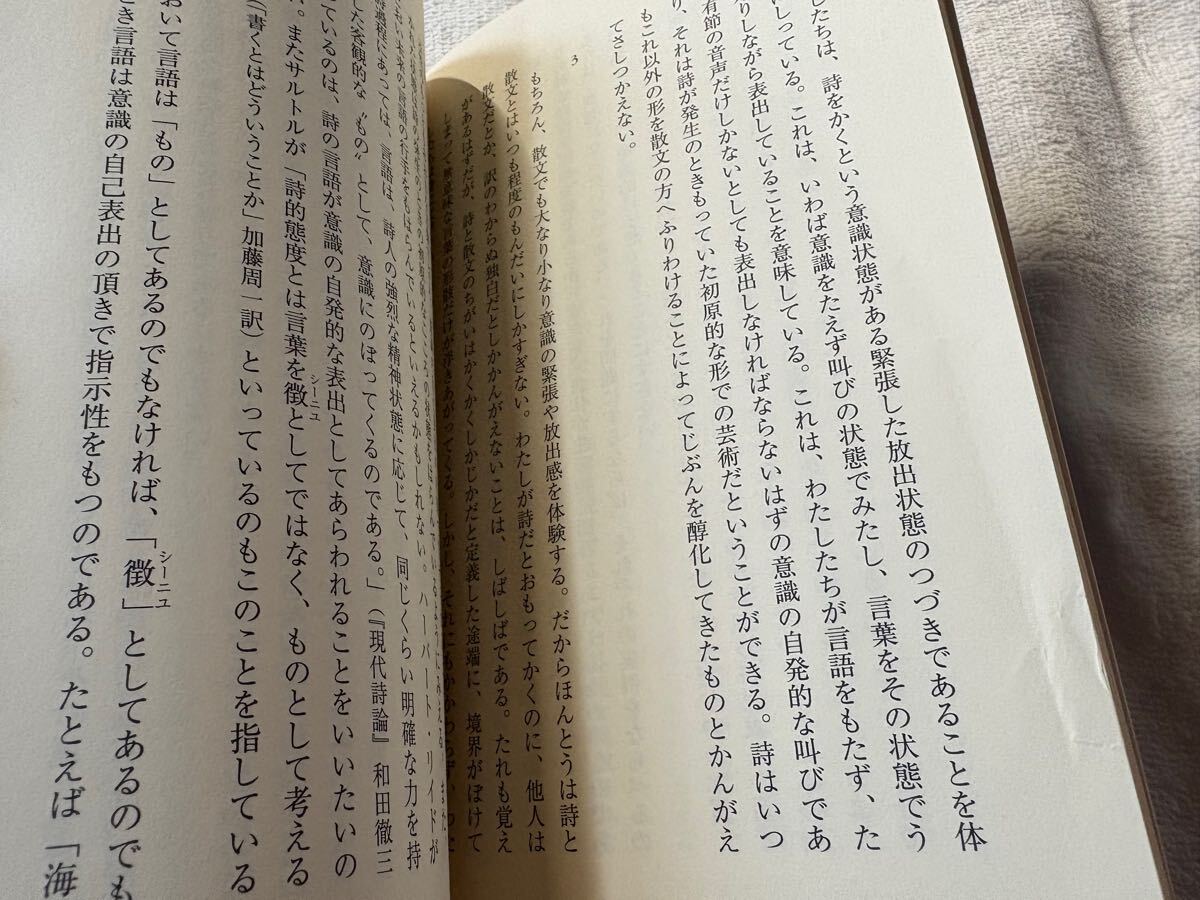 したちは、詩をかくという意識状態がある緊張した放出状態のつづきであることを体
にしっている。これは、いわば意識をたえず叫びの状態でみたし、言葉をその状態でう
りしながら表出していることを意味している。これは、わたしたちが言語をもたず、た
有節の音声だけしかないとしても表出しなければならないはずの意識の自発的な叫びであ
り、それは詩が発生のときもっていた初原的な形での芸術だということができる。詩はいつ
もこれ以外の形を散文の方へふりわけることによってじぶんを醇化してきたものとかんがえ
てさしつかえない。
3
もちろん、散文でも大なり小なり意識の緊張や放出感を体験する。だからほんとうは詩と
散文とはいつも程度のもんだいにしかすぎない。わたしが詩だとおもってかくのに、他人は
散文だとか、訳のわからぬ独白だとしかかんがえないことは、しばしばである。たれも覚え
があるはずだが、詩と散文のちがいはかくかくしかじかだと定義した途端に、境界がぼけて
しまって無意味な言葉の形骸だけが浮きあがってくる。しかし、それにもかかわらず、わた
ハーバート・リイドが
過程にあっては、言語は、詩人の強烈な精神状態に応じて、同じくらい明確な力を持
した客観的な〝もの〟として、意識にのぼってくるのである。」(『現代詩論』和田徹三
ているのは、詩の言語が意識の自発的な表出としてあらわれることをいいたいの
。またサルトルが「詩的態度とは言葉を徴シーニュとしてではなく、ものとして考える
(「書くとはどういうことか」加藤周一訳)といっているのもこのことを指している
おいて言語は「もの」としてあるのでもなければ、「徴シーニュ」としてあるのでも
き言語は意識の自己表出の頂きで指示性をもつのである。たとえば「海